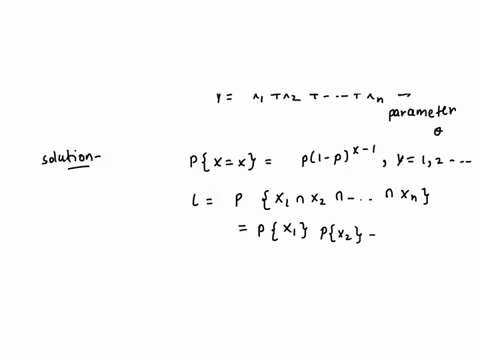 Y = x₁ + x₂ + - .. + xₙ →
parameter
θ
solution-
P{x=x} = p(1-p)^(x-1), y=1,2 - ...
L = P {x₁ ∩ x₂ ∩ - .. ∩ xₙ}
= P{x₁} P{x₂} -